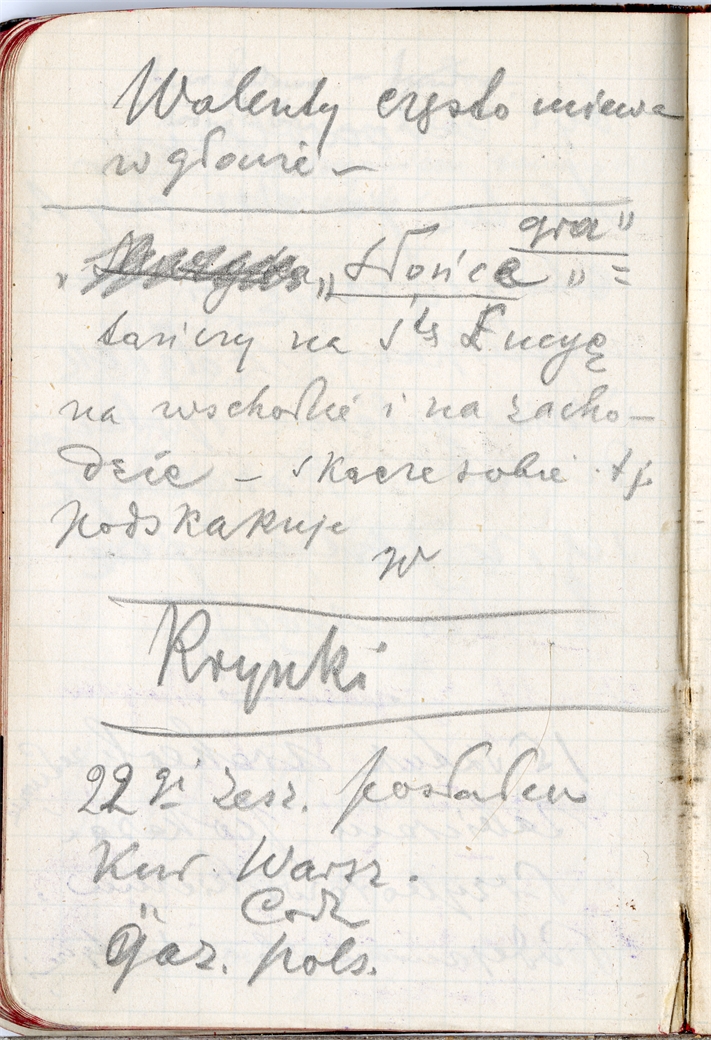 Walenty czysto miewa
w głowie —
gra"
„Słońce" =
tańczy na Stę Łucyę
na wschodzie i na zacho-
dzie - skacze sobie tj.
podskakuje
w
Krynki
22gi zesz. posłałem
Kur. Warsz.
" Codz
Gaz. pols.